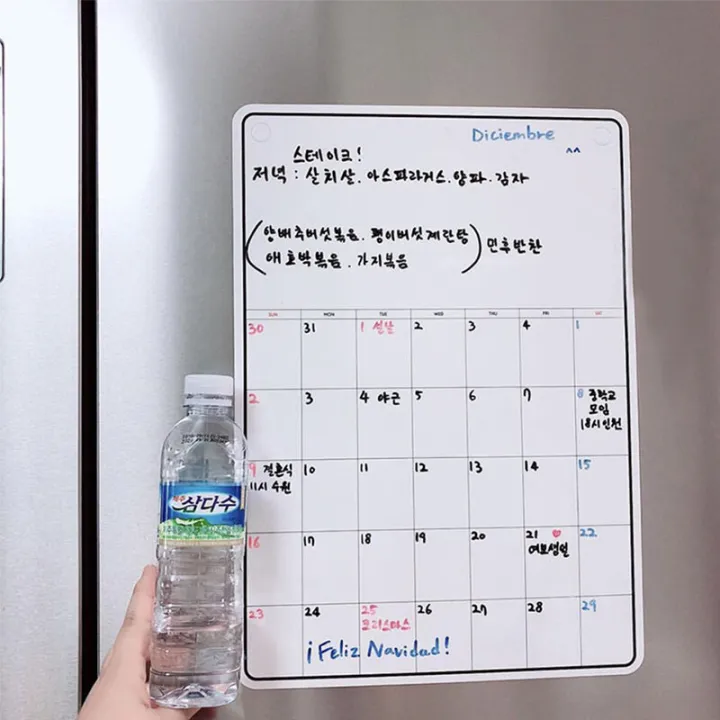 Diciembre
^^
스테이크!
저녁 : 살치살. 아스파라거스. 양파. 감자
(양배추버섯볶음. 팽이버섯계란탕
애호박볶음. 가지볶음) 민후반찬
SUN MON TUE WED THU FRI SAT
30 31 1 설날 2 3 4 1
2 3 4 야근 5 6 7 8 중학교
모임
18시 인천
9 결혼식 10 11 12 13 14 15
11시 수원
16 17 18 19 20 21 ♥ 22
여보생일
23 24 25 26 27 28 29
크리스마스
¡Feliz Navidad!
제주
삼다수